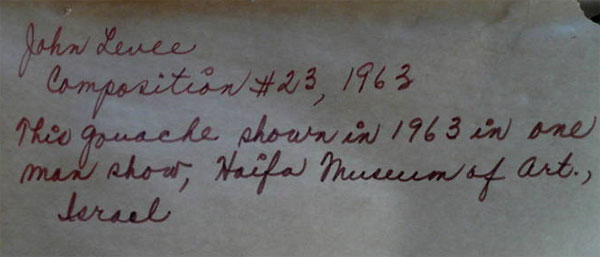 John Levee
Composition #23, 1963
This gouache shown in 1963 in one
man show, Haifa Museum of Art.,
Israel